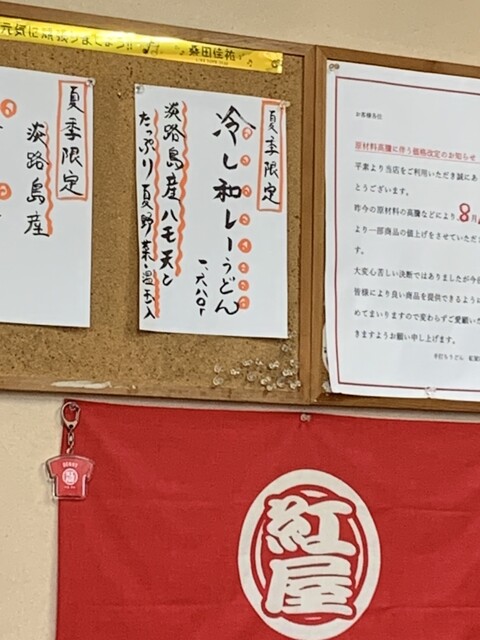 元気に頑張りましょう!! 桑田佳祐
夏季限定
淡路島産
夏季限定
冷し和レーうどん
一、六八〇円
淡路島産ハモ天と
たっぷり夏野菜・温玉入
お客様各位
原材料高騰に伴う価格改定のお知らせ
平素より当店をご利用いただき誠にあ
とうございます。
昨今の原材料の高騰などにより、8月
より一部商品の値上げをさせていただ
す。
大変心苦しい決断ではありましたが今
皆様により良い商品を提供できるように
めてまいりますので変わらずご愛顧いた
きますようお願い申し上げます。
手打ちうどん 紅屋
紅屋